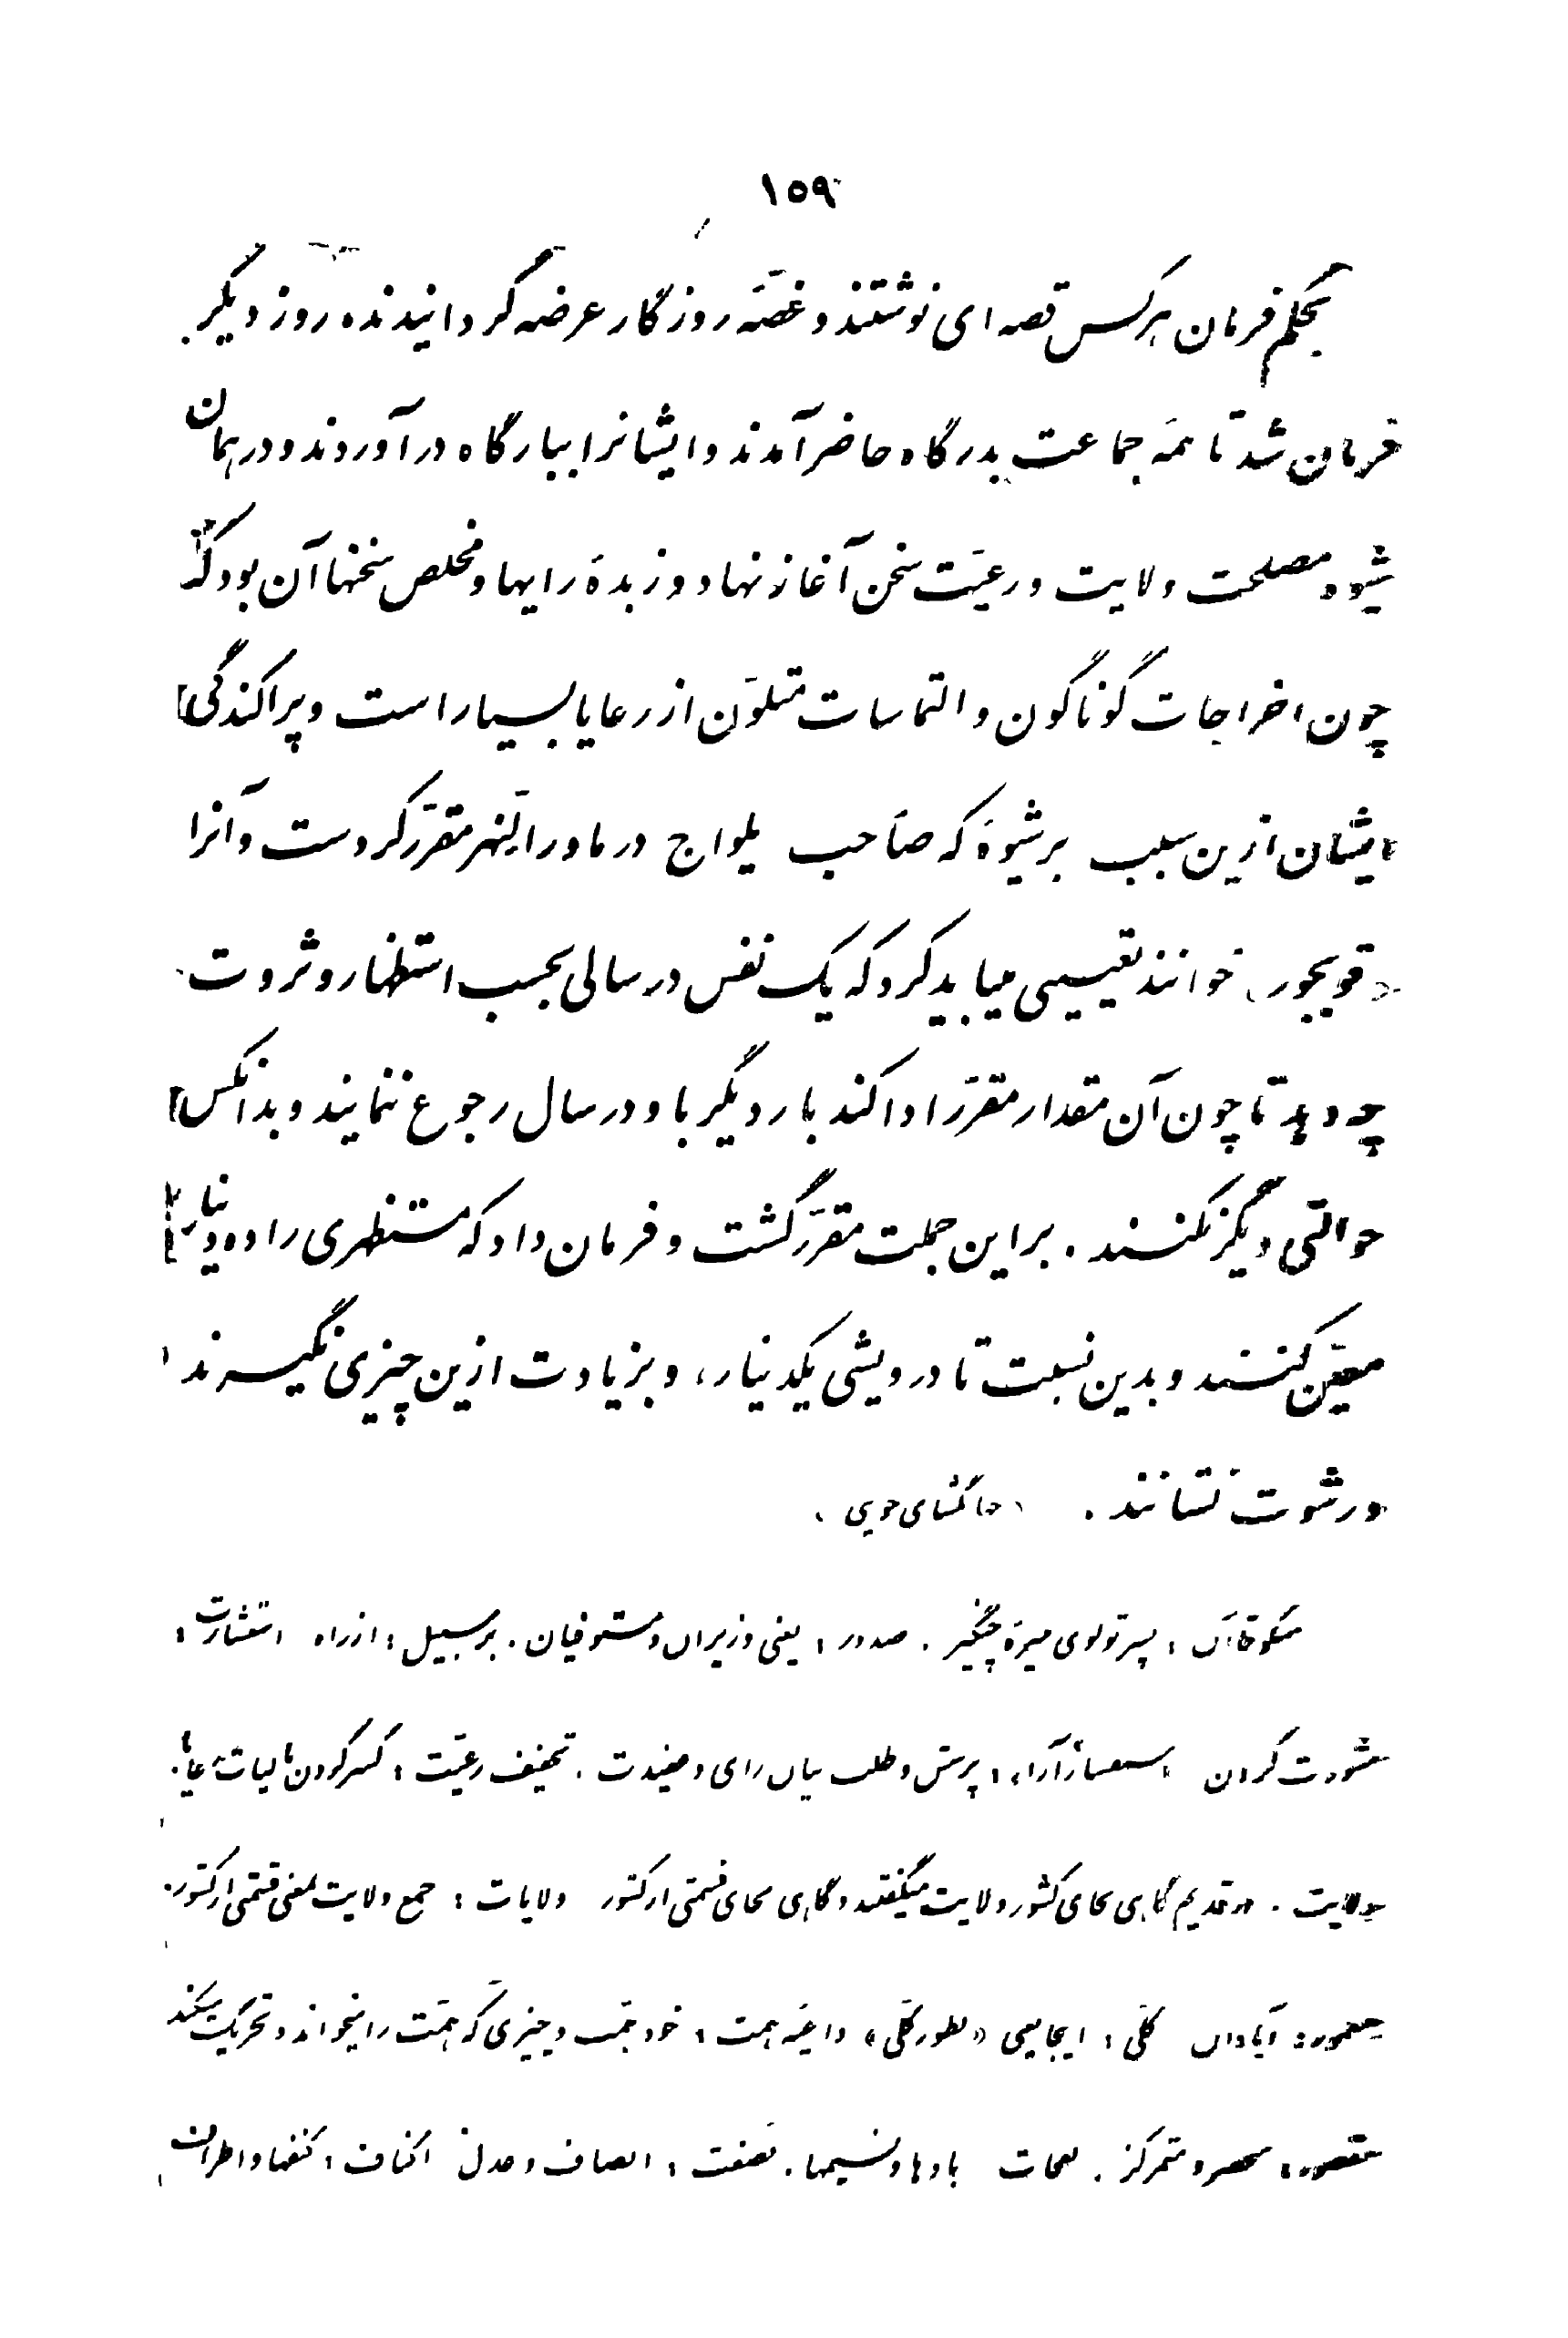 ١٥٩
بحکم فرمان هرکس قصه ای نوشتند و غصّه روزگار عرضه گردانیدند، روز دیگر
فرمان شد تا همه جماعت بدرگاه حاضر آمدند و ایشانرا ببارگاه درآوردند و در همان
شیوه مصلحت ولایت و رعیّت سخن آغاز نهاد و زبدهٔ رایها و مخلص سخنها آن بود که
چون اخراجات گوناگون و التماسات متلوّن از رعایا بسیار است و پراکندگی
ایشان ازین سبب بر شیوهٔ که صاحب یلواج در ماوراء النهر مقرّر کردست و آنرا
«قوبجور» خوانند تقسیمی میباید کرد که یک نفس در سالی بحسب استظهار و ثروت
چه دهد تا چون آن مقدار مقرّر ادا کند بار دیگر باو در سال رجوع ننمایند و بدانکس
حوالتی دیگر نکنند. براین جملت مقرّر گشت و فرمان داد که مستظهری را ده دینار
معیّن کنند و بدین نسبت تا درویشی یکدینار، و بزیادت ازین چیزی نگیرند
و رشوت نستانند. (جهانگشای جوینی)
منکوقاآن : پسر تولوی میرهٔ چنگیز. صدور : یعنی وزیران و مستوفیان. بر سبیل : از راه استشارت :
مشورت کردن استفسار آراء : پرسش و طلب بیان رای و عقیدت. تخفیف رعیّت : کسر کردن مالیات رعایا.
ولایت. در قدیم گاهی بجای کشور ولایت میگفتند و گاهی بجای قسمتی از کشور ولایات : جمع ولایت بمعنی قسمتی از کشور.
معمور : آبادان کلّی : اینجا یعنی «بطور کلّی» داعیه همت : خود همّت و چیزی که همّت را میخواند و تحریک میکند
مقصور : منحصر و متمرکز. نفحات بادها و نسیمها. نصفت : انصاف و عدل اکناف : کنفها و اطراف